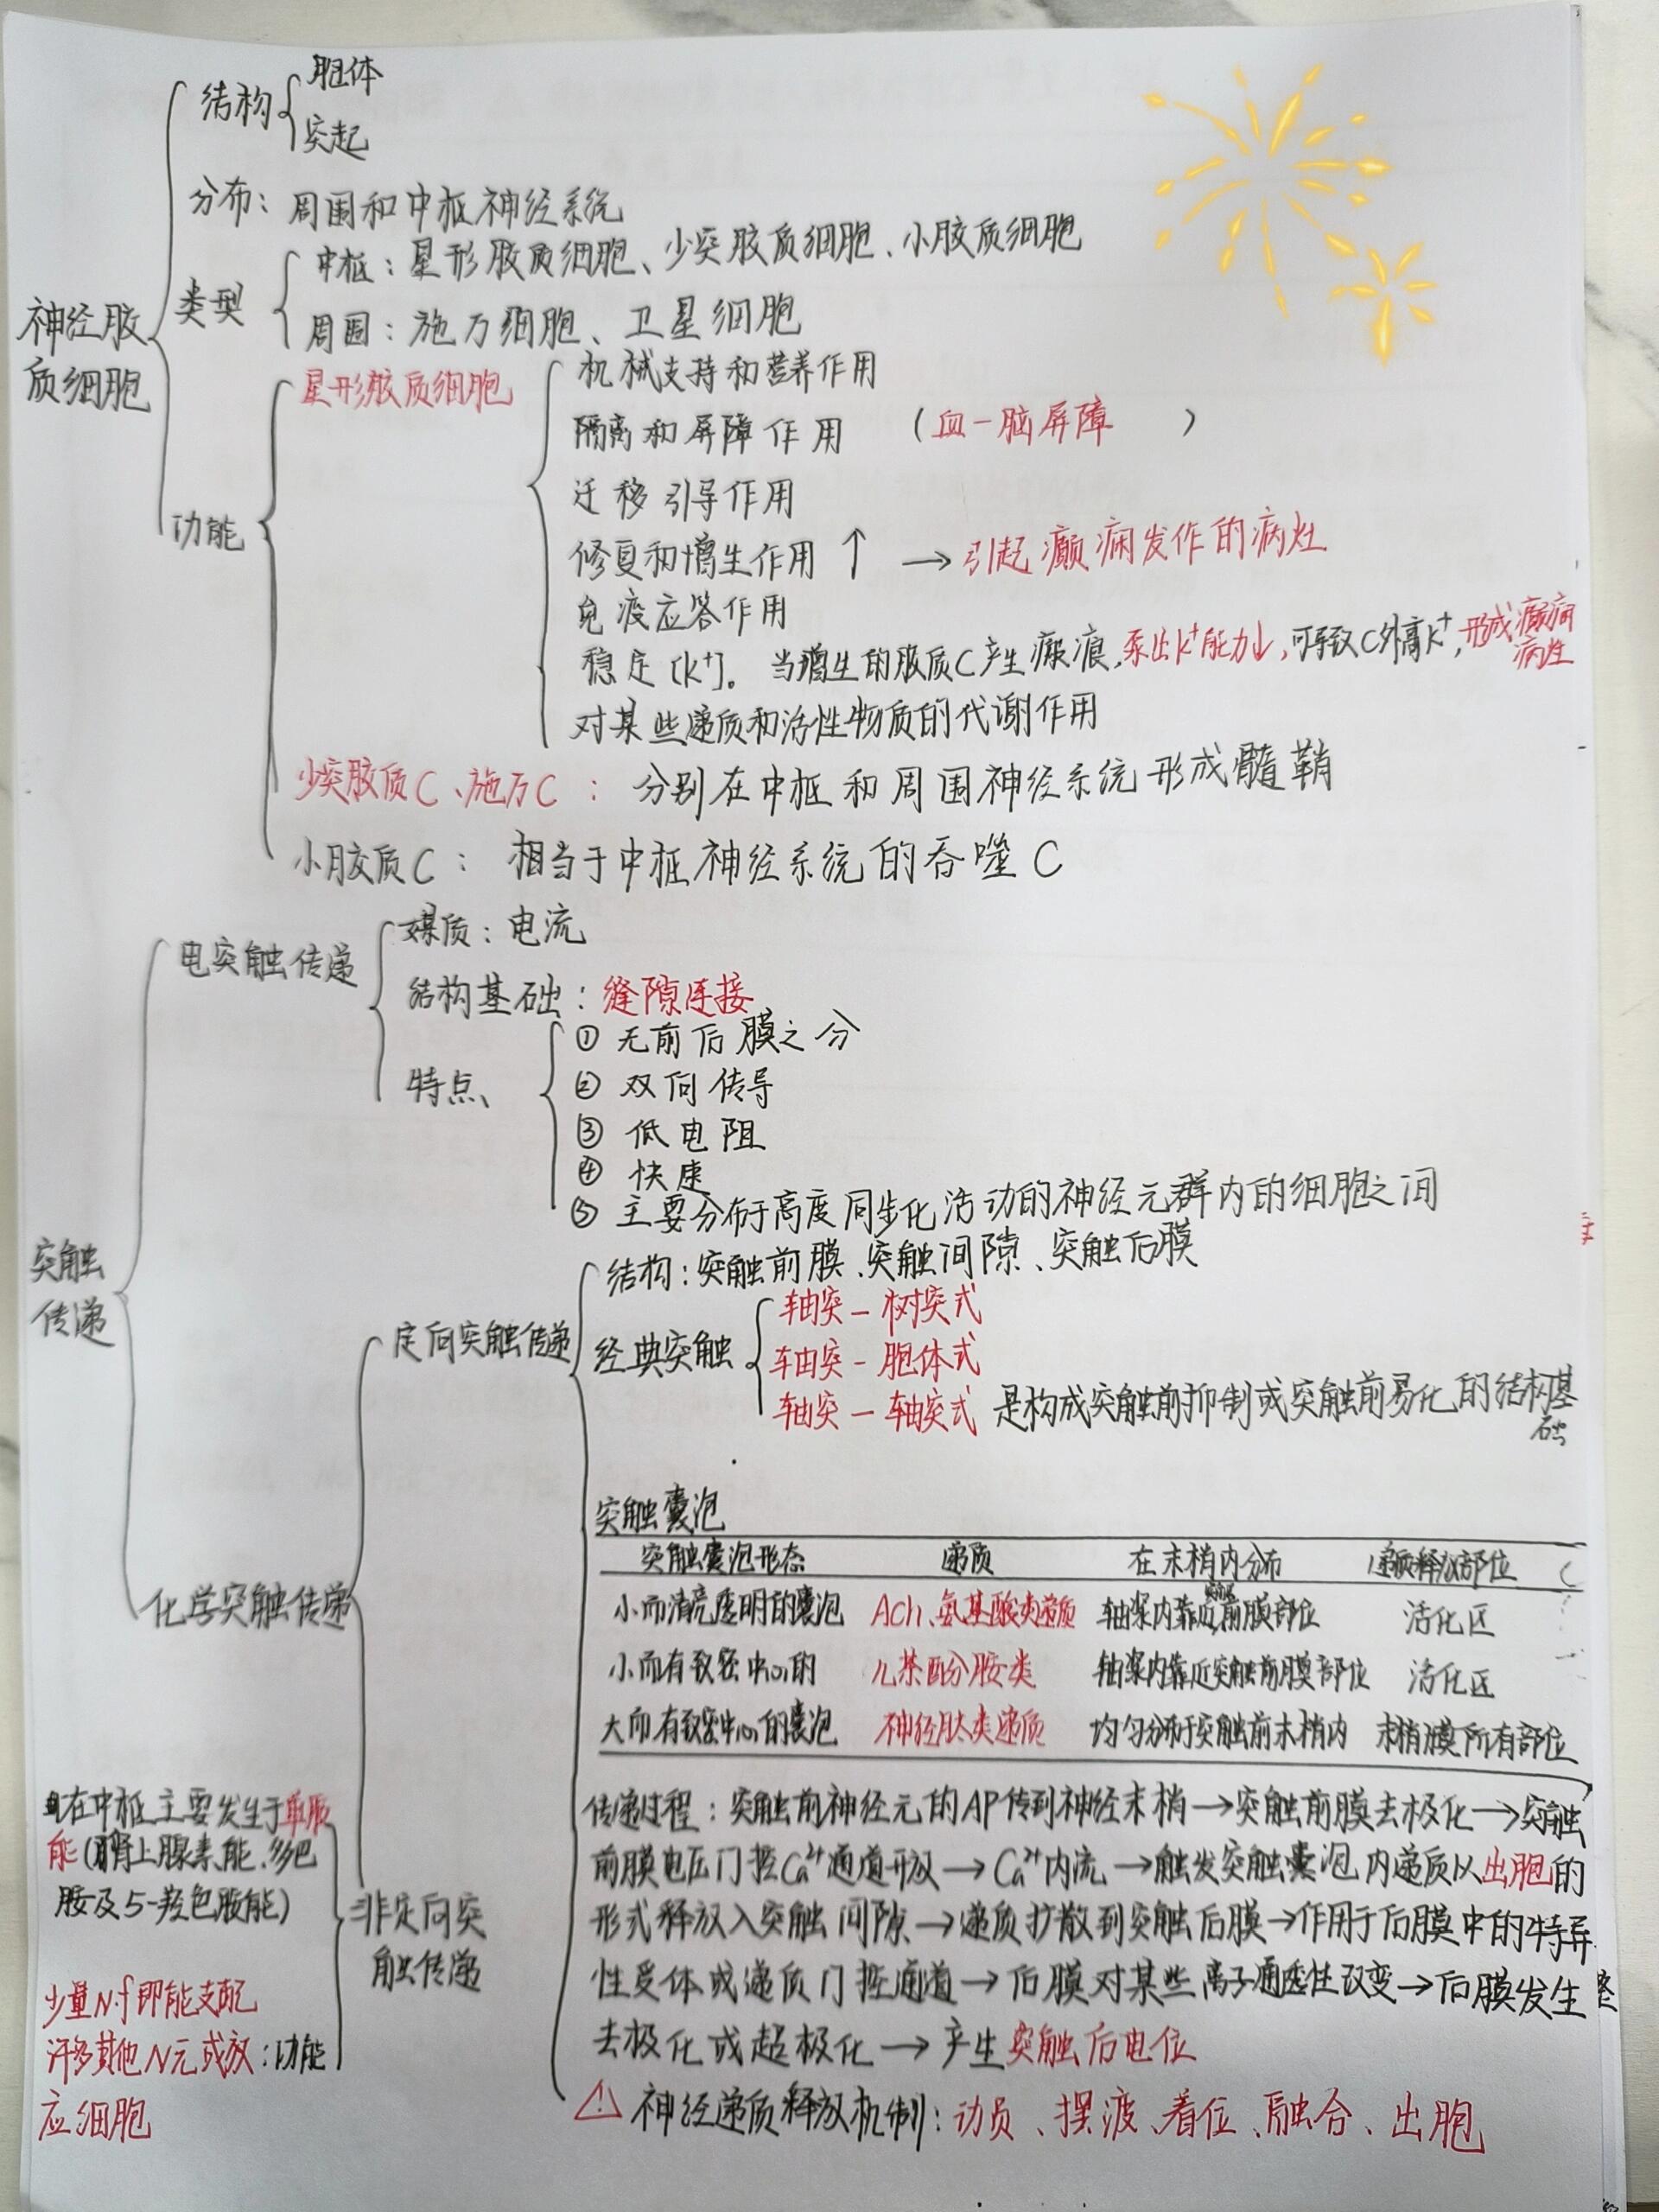 神经胶
质细胞
结构
胞体
突起
分布：周围和中枢神经系统
类型
中枢：星形胶质细胞、少突胶质细胞、小胶质细胞
周围：施万细胞、卫星细胞
功能
星形胶质细胞
机械支持和营养作用
隔离和屏障作用 （血-脑屏障 ）
迁移引导作用
修复和增生作用 ↑ → 引起癫痫发作的病灶
免疫应答作用
稳定[K⁺]。当增生的胶质C产生瘢痕，泵出K⁺能力↓，可导致C外高K⁺，形成癫痫
病灶
对某些递质和活性物质的代谢作用
少突胶质C、施万C：分别在中枢和周围神经系统形成髓鞘
小胶质C：相当于中枢神经系统的吞噬C
突触
传递
电突触传递
媒质：电流
结构基础：缝隙连接
特点
① 无前后膜之分
② 双向传导
③ 低电阻
④ 快速
⑤ 主要分布于高度同步化活动的神经元群内的细胞之间
化学突触传递
定向突触传递
结构：突触前膜、突触间隙、突触后膜
经典突触
轴突-树突式
轴突-胞体式
轴突-轴突式 是构成突触前抑制或突触前易化的结构基
础
突触囊泡
突触囊泡形态 递质 在末梢内分布 递质释放部位
小而清亮透明的囊泡 ACh、氨基酸类递质 轴浆内靠近突触前膜部位 活化区
小而有致密中心的 儿茶酚胺类 轴浆内靠近突触前膜部位 活化区
大而有致密中心的囊泡 神经肽类递质 均匀分布于突触前末梢内 末梢膜所有部位
传递过程：突触前神经元的AP传到神经末梢→突触前膜去极化→突触
前膜电压门控Ca²⁺通道开放→Ca²⁺内流→触发突触囊泡内递质以出胞的
形式释放入突触间隙→递质扩散到突触后膜→作用于后膜中的特异
性受体或递质门控通道→后膜对某些离子通透性改变→后膜发生
去极化或超极化→产生突触后电位
⚠ 神经递质释放机制：动员、摆渡、着位、融合、出胞
非定向突
触传递
在中枢主要发生于单胺
能（肾上腺素能、多巴
胺及5-羟色胺能）
少量N.f即能支配
许多其他N元或效：功能
应细胞